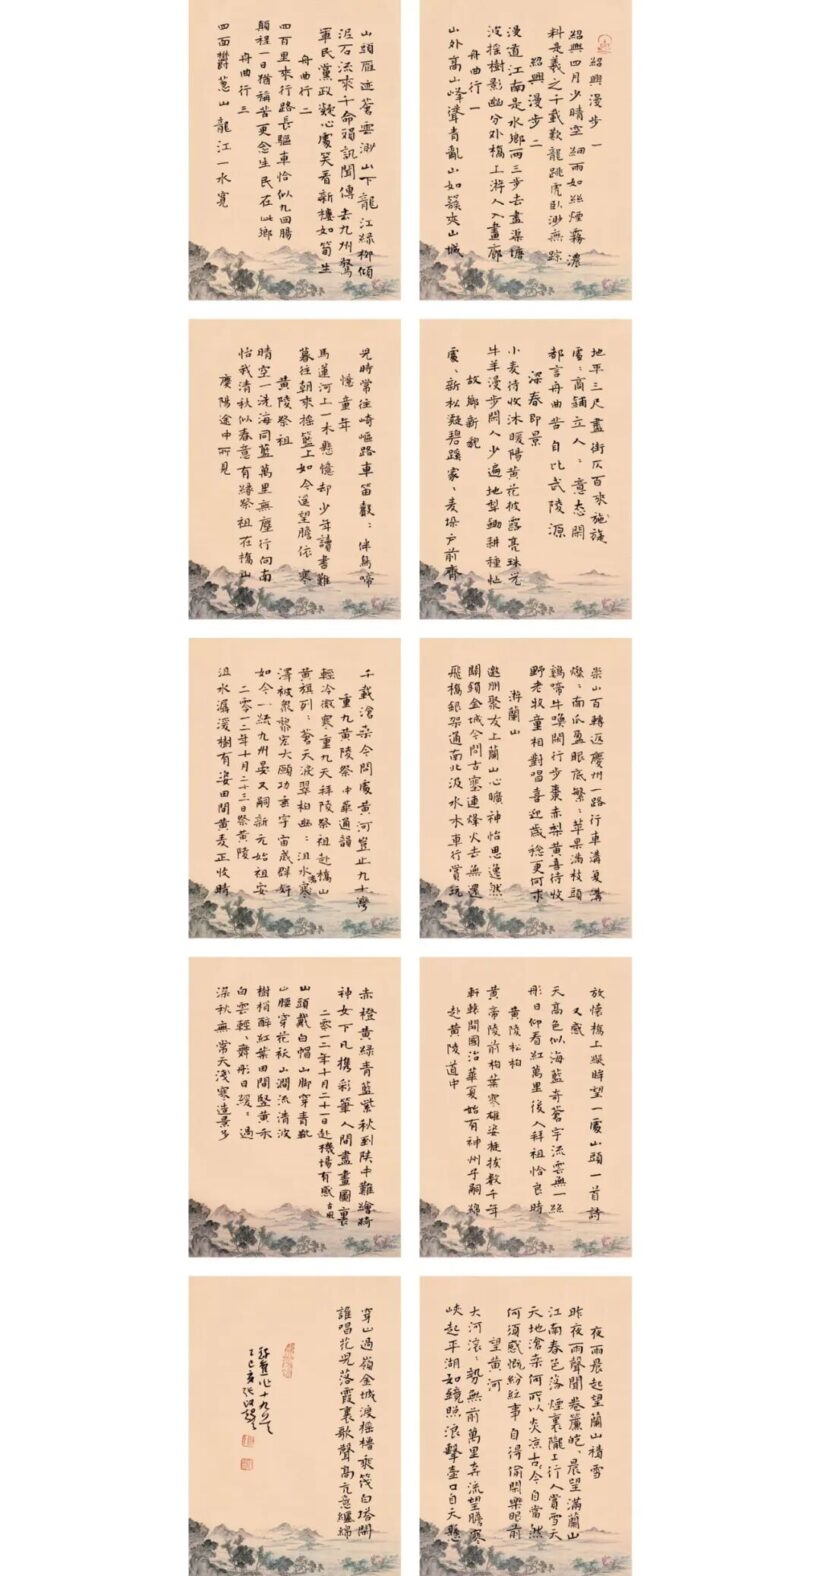 紹興漫步 一
紹興四月少晴空細雨如絲煙霧濃
料是羲之千載歎龍跳虎臥渺無踪
紹興漫步 二
漫道江南是水鄉兩三步去盡渠塘
波搖樹影幽分外橋上游人入畫廊
舟曲行 一
山外高山峰聳青亂山如簇夾山城
山頭雁迹蒼雲渺山下龍江綠柳傾
泥石流來千命殞訊聞傳去九州驚
軍民黨政凝心處笑看新樓如筍生
舟曲行 二
四百里來行路長驅車恰似九回腸
顛程一日猶稱苦更念生民在此鄉
舟曲行 三
四面鬱蔥山龍江一水寬
地平三尺盡街仄百家施旗
處々商鋪立人々意态閑
都言舟曲苦自比武陵源
深春即景
小麥待收沐暖陽黄花披露亮珠光
牛羊漫步閑人少遍地犁鋤耕種忙
故鄉新貌
處々新松凝碧蹊家々麦垛户前齊
兒時常往崎嶇路車笛聲々伴鳥啼
憶童年
馬蓮河上一木懸憶却少年讀書難
暮往朝來搖籃上如今遥望膽依寒
黄陵祭祖
晴空一洗海同藍萬里無塵行向南
怡我清秋似春意有緣祭祖在橋山
慶陽途中所見
崇山百轉返慶州一路行車溝复溝
燦々南瓜盈眼底繁々苹果满枝頭
鷄啼牛喚閑行步棗赤梨黄喜待收
野老牧童相對唱喜迎歲稔更何求
游蘭山
邀朋聚友上蘭山心曠神怡思逸然
關鎖金城今問古壑連烽火去無還
飛橋卧架通南北汲水木車行賞玩
千載滄桑今問處黄河豈止九十灣
重九黄陵祭 中華通韻
輕冷微寒重九天拜陵祭祖赴橋山
黄旗列々蒼天淚翠柏幽々沮水寒
澤被衆黎宏大願功垂宇宙感群
如今一統九州晏又嗣新元始祖安
二零一二年十月二十三日祭黄陵
沮水潺湲樹有姿田間黄麦正收時
放懷橋上凝眸望一處山頭一首詩
又感
天高色似海藍奇蒼宇流雲無一絲
彤日仰看紅萬里後人拜祖恰良時
黄陵松柏
黄帝陵前柏葉寒雄姿挺拔數千年
軒轅開國治華夏始有神州子嗣綿
赴黄陵道中
赤橙黄綠青藍紫秋到陕中難繪時
神女下凡携彩筆人間盡畫圖裏
二零一二年十月二十一日赴機場有感 古風
山頭戴白帽山脚穿青靴
山腰穿花袄山澗流清波
樹梢醉紅葉田間堅黄禾
白雲輕々舞彤日緩々過
深秋無常天淺寒造景多
夜雨晨起望蘭山積雪
昨夜雨聲聞卷簾晚晨望滿蘭山
江南春色落煙裏隴上行人賞雪天
天地滄桑何所以炎凉古今自當然
何須感慨紛紜事自得偷閑樂眼前
望黄河
大河滾々勢無前萬里奔流望膽寒
峽起平湖如鏡照浪擊壶口自天懸
穿山過嶺金城渡摇櫓乘筏白塔閑
誰唱花兒落霞裏歌聲高亢意纏綿